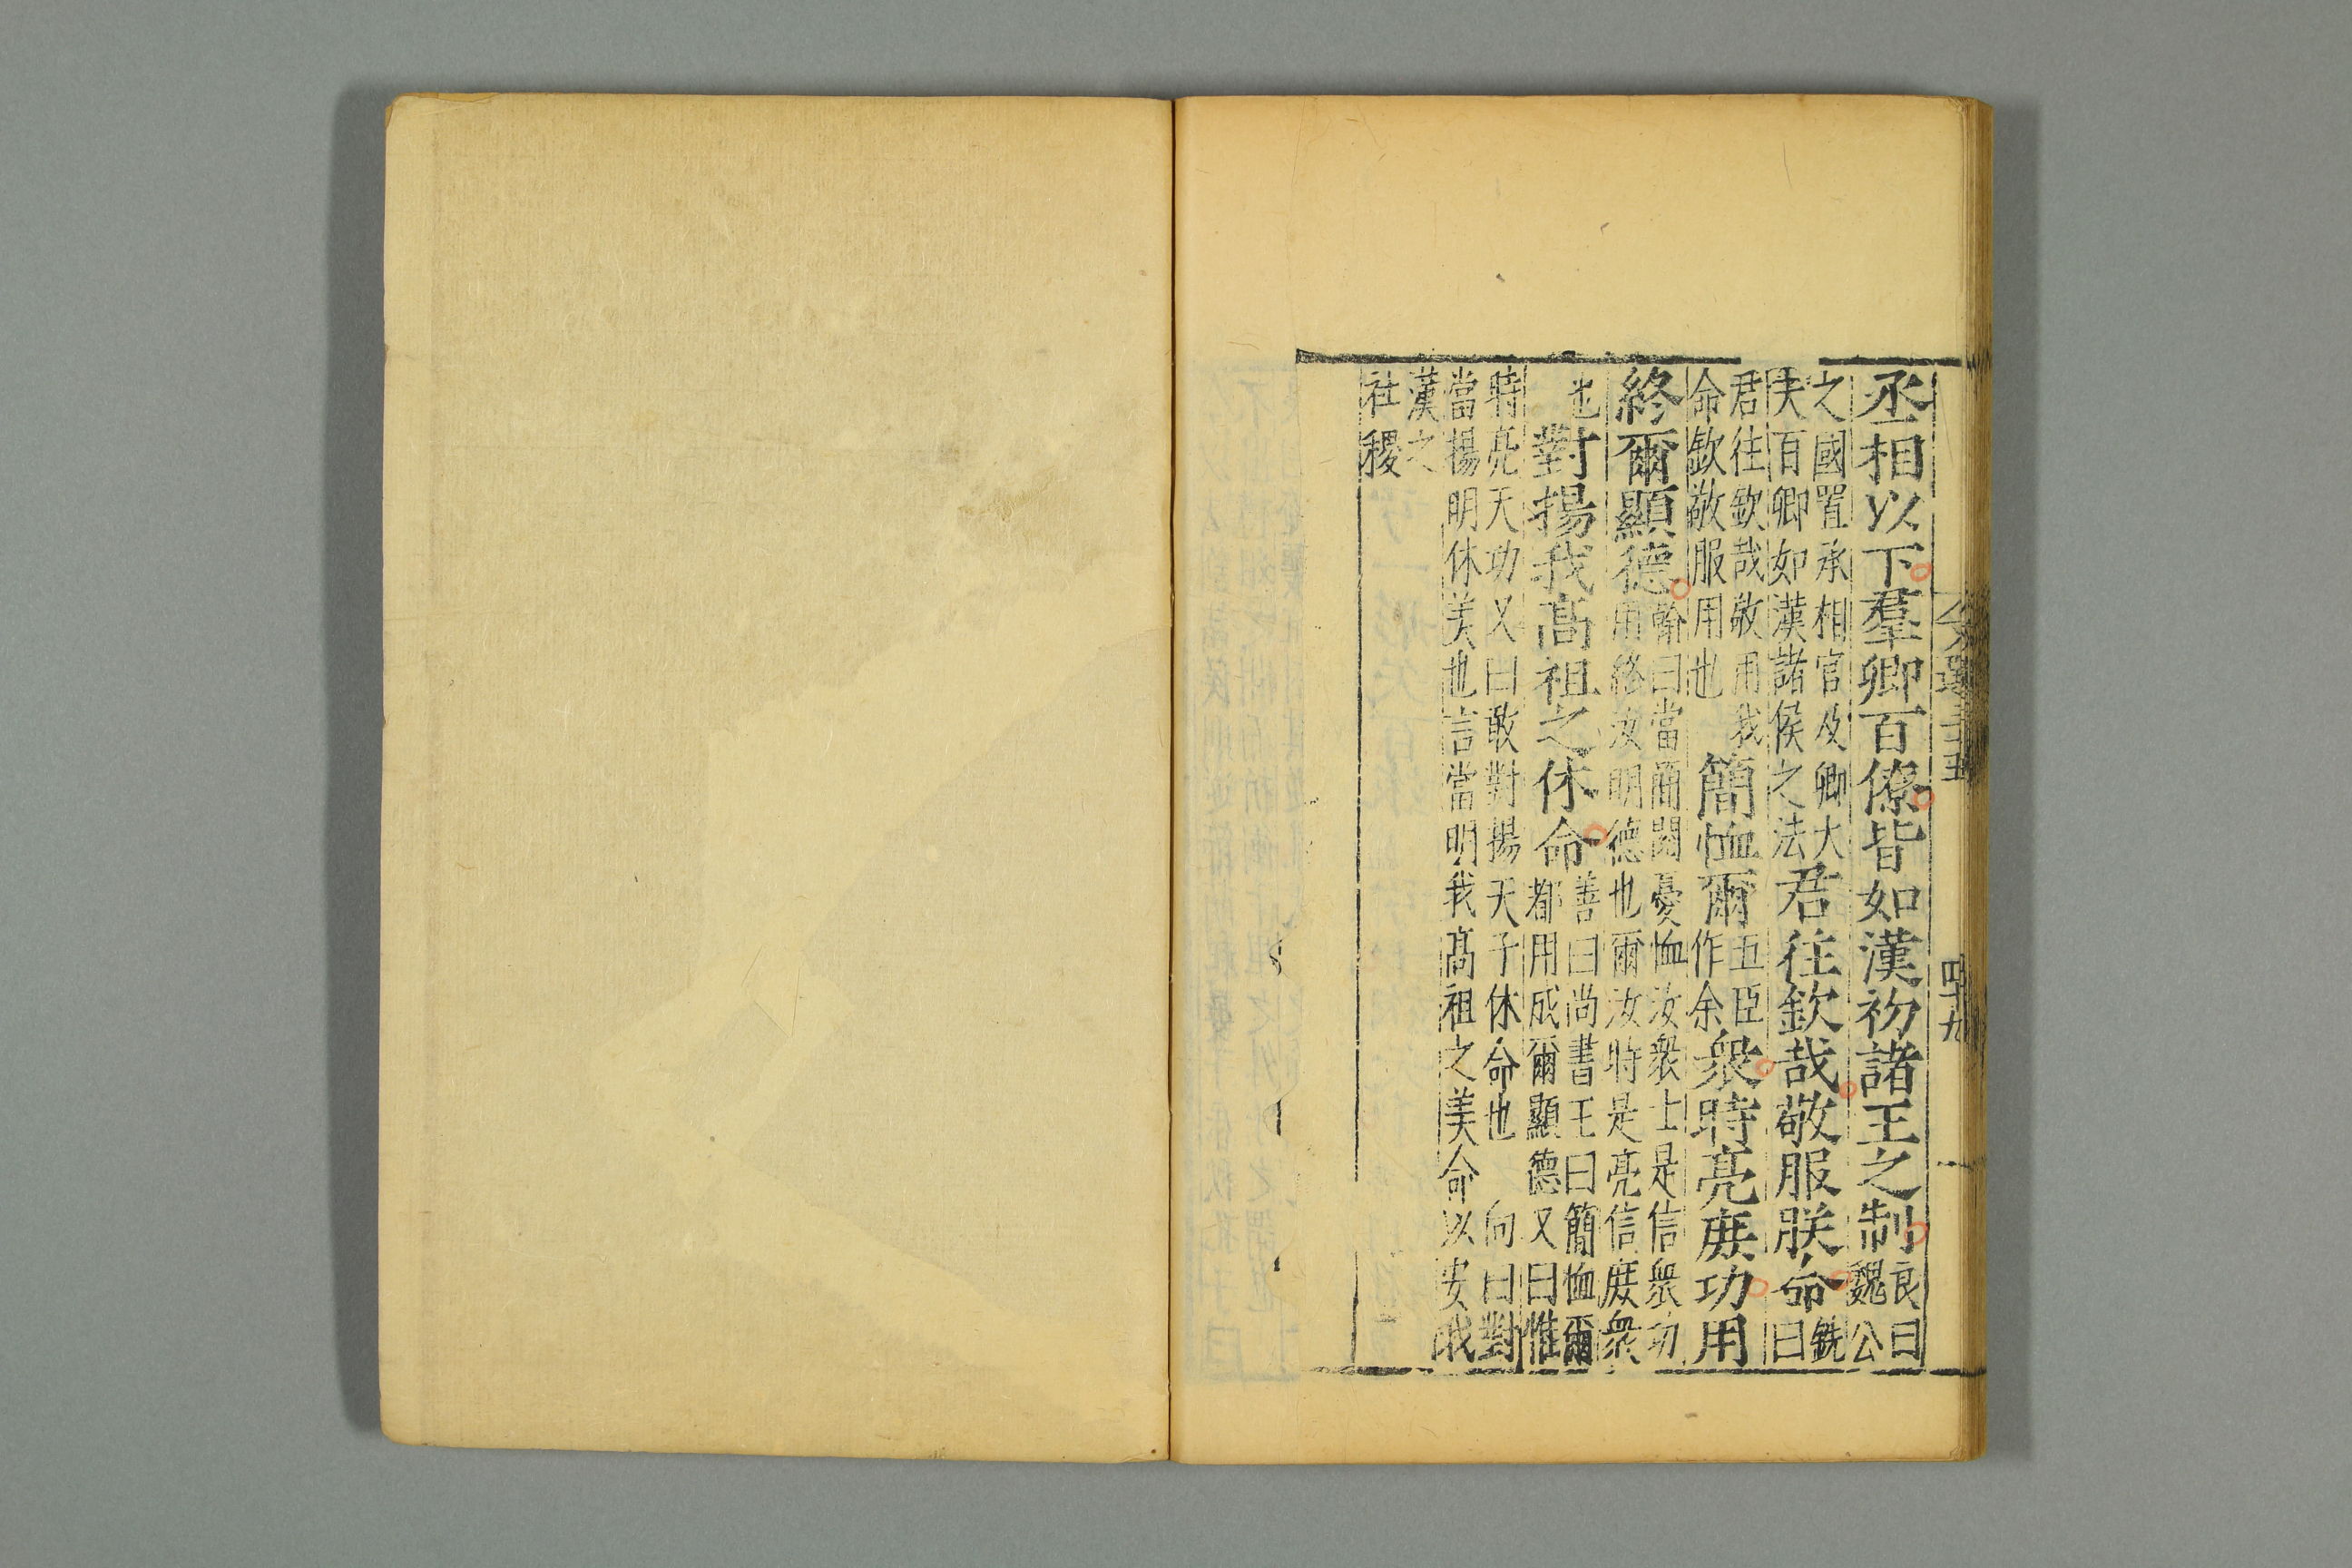 丞相以下羣卿百僚皆如漢初諸王之制良曰魏公
之國置承相官及卿大夫百卿如漢諸侯之法君往欽哉敬服朕命銑曰
君往欽哉敬用我命欽敬服用也簡恤爾五臣作余衆時亮庶功用
終爾顯德翰曰當簡閱憂恤汝衆士是信衆功用終汝明德也爾汝時是亮信庶衆
也對揚我高祖之休命善曰尚書王曰簡恤爾都用成爾顯德又曰惟
時亮天功又曰敢對揚天子休命也向曰對當揚明休美也言當明我高祖之美命以安我
漢之社稷
文選三十五
四十九